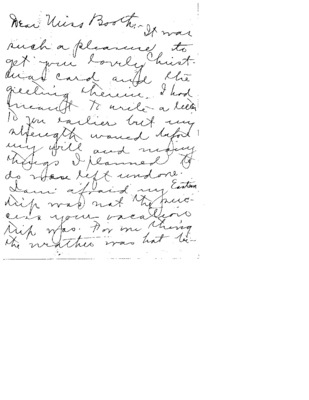 Dear Miss Booth,- It was
such a pleasure to
get your lovely Christ-
mas card and the
greeting therein. I had
meant to write a letter
to you earlier but my
strength waned before
my will and many
things I planned to
do were left undone.
I am afraid my Eastern
trip was not the suc-
cess your vacation
trip was. For one thing
the weather was hot be-